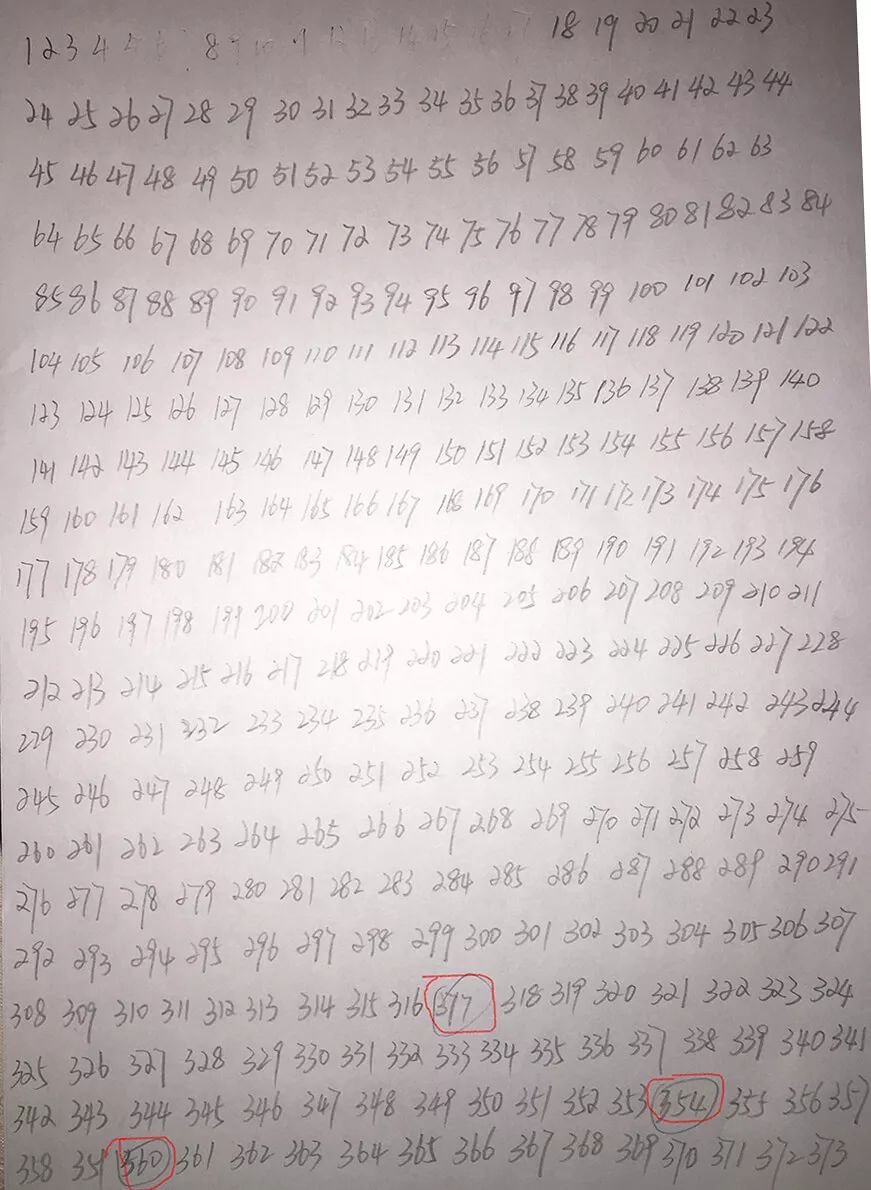 1 2 3 4 5 6 8 9 10 11 12 13 14 15 16 17 18 19 20 21 22 23
24 25 26 27 28 29 30 31 32 33 34 35 36 37 38 39 40 41 42 43 44
45 46 47 48 49 50 51 52 53 54 55 56 57 58 59 60 61 62 63
64 65 66 67 68 69 70 71 72 73 74 75 76 77 78 79 80 81 82 83 84
85 86 87 88 89 90 91 92 93 94 95 96 97 98 99 100 101 102 103
104 105 106 107 108 109 110 111 112 113 114 115 116 117 118 119 120 121 122
123 124 125 126 127 128 129 130 131 132 133 134 135 136 137 138 139 140
141 142 143 144 145 146 147 148 149 150 151 152 153 154 155 156 157 158
159 160 161 162 163 164 165 166 167 168 169 170 171 172 173 174 175 176
177 178 179 180 181 182 183 184 185 186 187 188 189 190 191 192 193 194
195 196 197 198 199 200 201 202 203 204 205 206 207 208 209 210 211
212 213 214 215 216 217 218 219 220 221 222 223 224 225 226 227 228
229 230 231 232 233 234 235 236 237 238 239 240 241 242 243 244
245 246 247 248 249 250 251 252 253 254 255 256 257 258 259
260 261 262 263 264 265 266 267 268 269 270 271 272 273 274 275
276 277 278 279 280 281 282 283 284 285 286 287 288 289 290 291
292 293 294 295 296 297 298 299 300 301 302 303 304 305 306 307
308 309 310 311 312 313 314 315 316 317 318 319 320 321 322 323 324
325 326 327 328 329 330 331 332 333 334 335 336 337 338 339 340 341
342 343 344 345 346 347 348 349 350 351 352 353 354 355 356 357
358 359 360 361 362 363 364 365 366 367 368 369 370 371 372 373